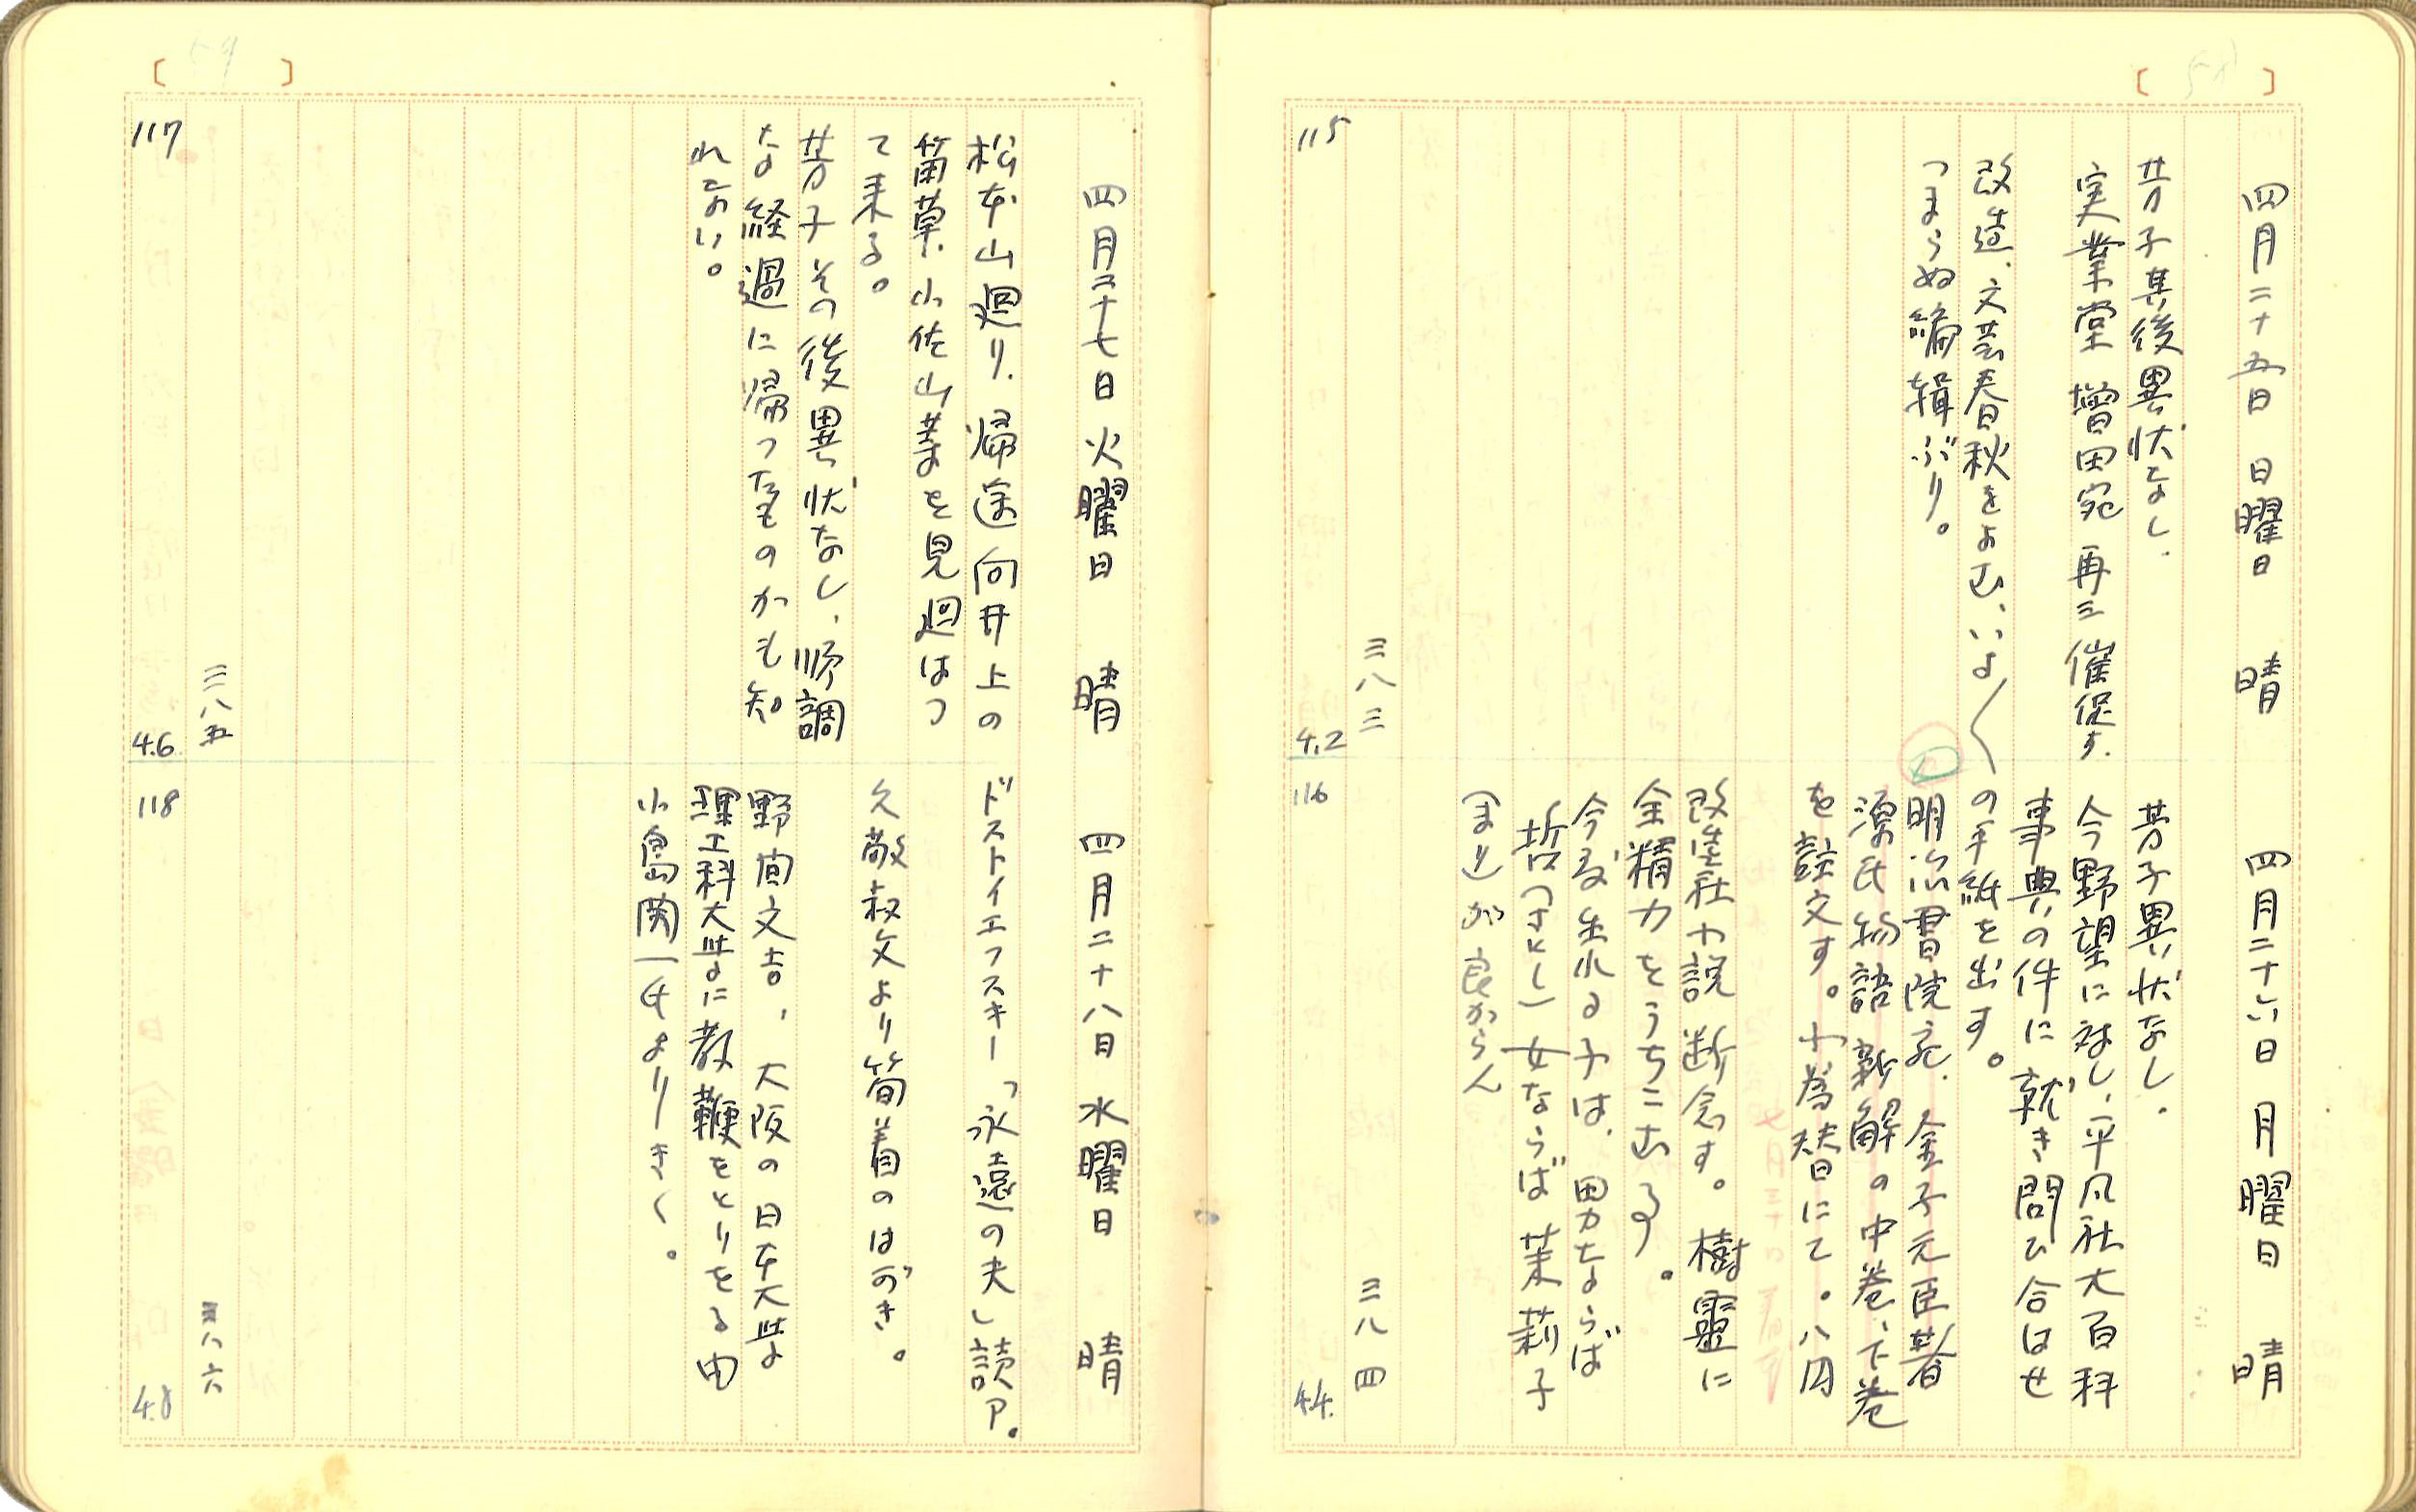 四月二十五日 日曜日 晴
芳子其後異状なし.
実業堂 増田宛 再三催促す.
改造、文芸春秋をよむ、いよ〳〵
つまらぬ編輯ぶり。
三八三
115
4.2
四月二十六日 月曜日 晴
芳子異状なし.
今野望に対し、平凡社大百科
事典の件に就き問ひ合はせ
の手紙を出す。
明治書院宛、金子元臣著
源氏物語新解の中巻、下巻
を註文す。小為替にて。八円
改造社小説断念す。樹霊に
全精力をうちこむ事。
今度生れる子は、男ならば
哲(さとし)女ならば茉莉子
(まり)が良からん
三八四
116
4.4.
四月二十七日 火曜日 晴
松本山廻り. 帰途向井上の
莆草、小佐山等を見廻はつ
て来る。
芳子その後異状なし、順調
な経過に帰つたものかも知
れない。
三八五
117
4.6
四月二十八日 水曜日 晴
ドストイエフスキー「永遠の夫」読了.
久敬叔父より筍着のはがき。
野間文吉、大阪の日本大学
理工科大学に教鞭をとりをる由
小島関一氏よりきく。
三八六
118
4.8